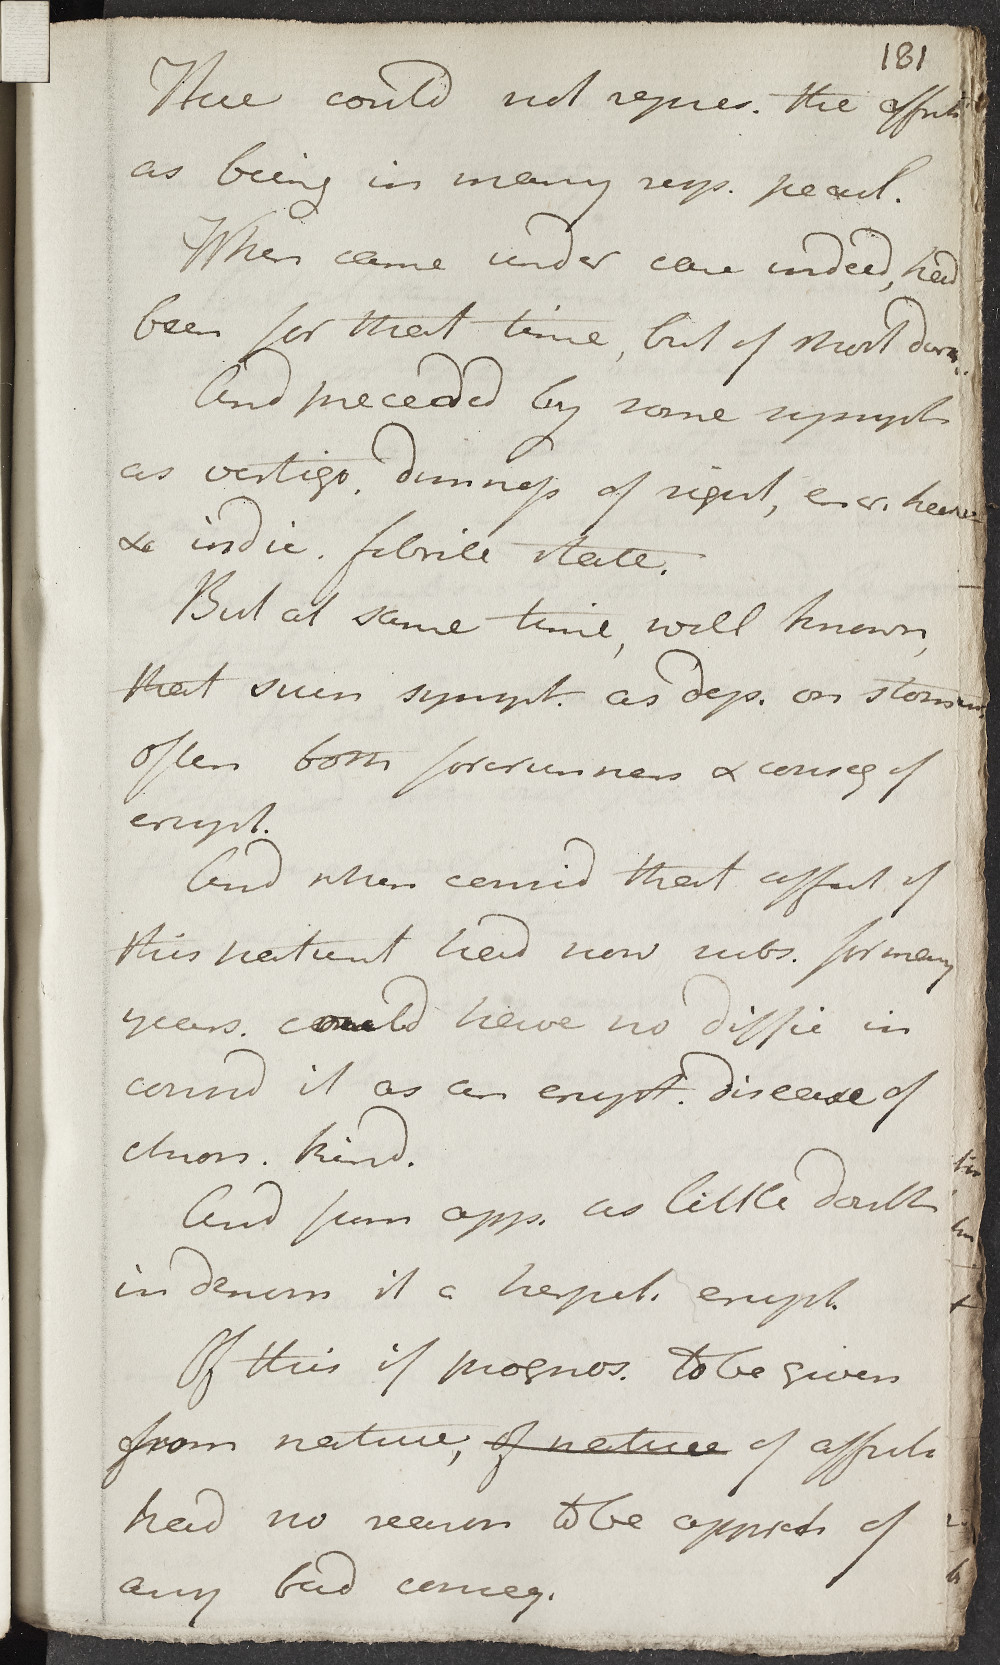 181
Thue could not repres. the affect
as being in many resp. pecul.
When came under care indeed, had
been for that time, but of short dura.
And preceded by some sympt
as vertigo, dimness of sight,
& indic. febrile state.
But at same time, well known,
that such sympt. as dep. on stomach
often both forerunners & conseq of
erupt.
And when consid that affect of
this patient had now subs. for many
years. could have no diffic in
consid it as an erupt. disease of
chron. kind.
And from app. as little doubt
in denom it a herpet. erupt.
Of this if prognos. to be given
from nature, of nature of affect
had no reason to be appreh of
any bad conseq.